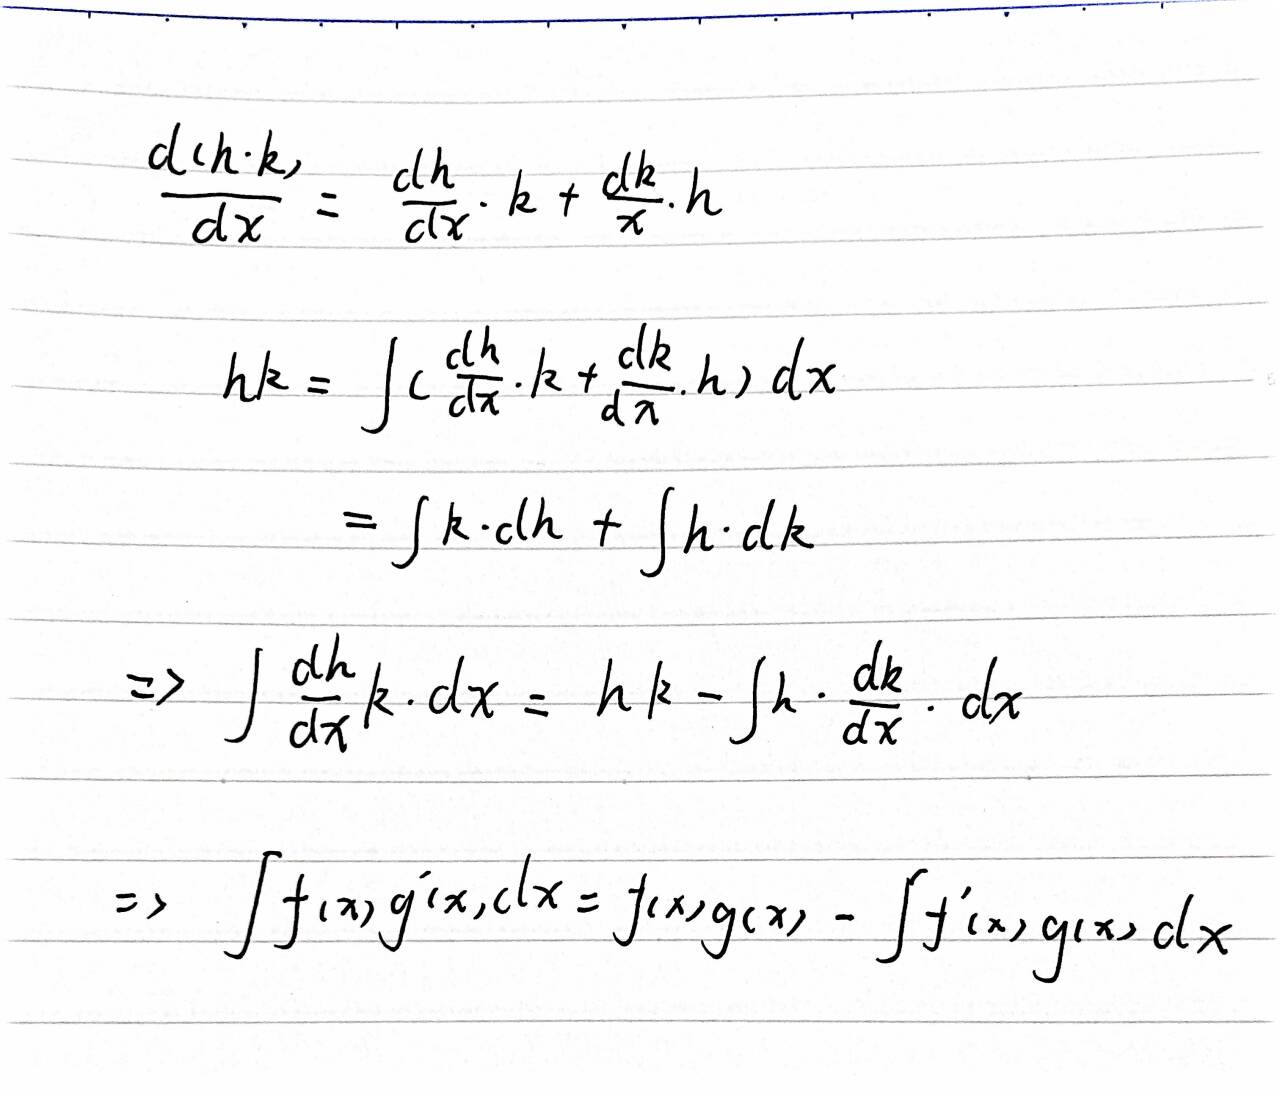 d(h·k)/dx = dh/dx · k + dk/x · h
hk = ∫( dh/dx · k + dk/dx · h ) dx
= ∫k·dh + ∫h·dk
=> ∫ dh/dx k · dx = hk - ∫h · dk/dx · dx
=> ∫f(x)g'(x)dx = f(x)g(x) - ∫f'(x)g(x)dx